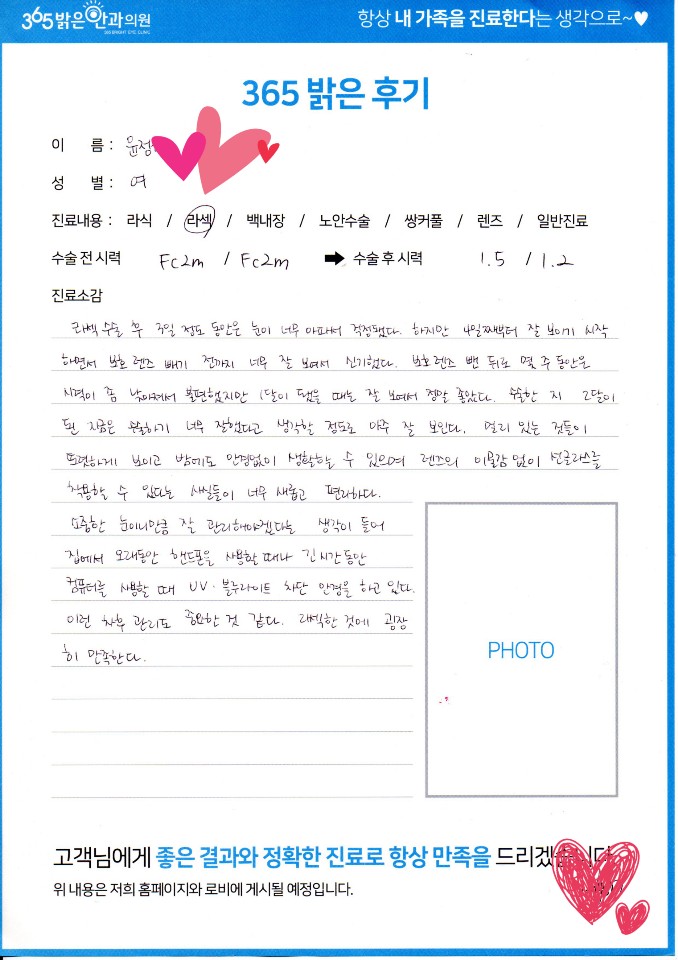 365밝은안과의원
365 BRIGHT EYE CLINIC
항상 내 가족을 진료한다는 생각으로~♥
365 밝은 후기
이 름 : 윤정
성 별 : 여
진료내용 : 라식 / 라섹 / 백내장 / 노안수술 / 쌍커풀 / 렌즈 / 일반진료
수술 전 시력 Fc2m / Fc2m ➡ 수술 후 시력 1.5 / 1.2
진료소감
라섹 수술 후 3일 정도 동안은 눈이 너무 아파서 걱정됐다. 하지만 4일째부터 잘 보이기 시작
하면서 보호 렌즈 빼기 전까지 너무 잘 보여서 신기했다. 보호렌즈 뺀 뒤로 몇 주 동안은
시력이 좀 낮아져서 불편했지만 1달이 됐을 때는 잘 보여서 정말 좋았다. 수술한 지 2달이
된 지금은 수술하기 너무 잘했다고 생각할 정도로 아주 잘 보인다. 멀리 있는 것들이
또렷하게 보이고 밤에도 안경없이 생활할 수 있으며 렌즈의 이물감 없이 선글라스를
착용할 수 있다는 사실들이 너무 새롭고 편리하다.
소중한 눈이니만큼 잘 관리해야겠다는 생각이 들어
집에서 오래동안 핸드폰을 사용할 때나 긴 시간 동안
컴퓨터를 사용할 때 UV·블루라이트 차단 안경을 하고 있다.
이런 차후 관리도 중요한 것 같다. 라섹한 것에 굉장
히 만족한다.
PHOTO
고객님에게 좋은 결과와 정확한 진료로 항상 만족을 드리겠습니다
위 내용은 저희 홈페이지와 로비에 게시될 예정입니다.